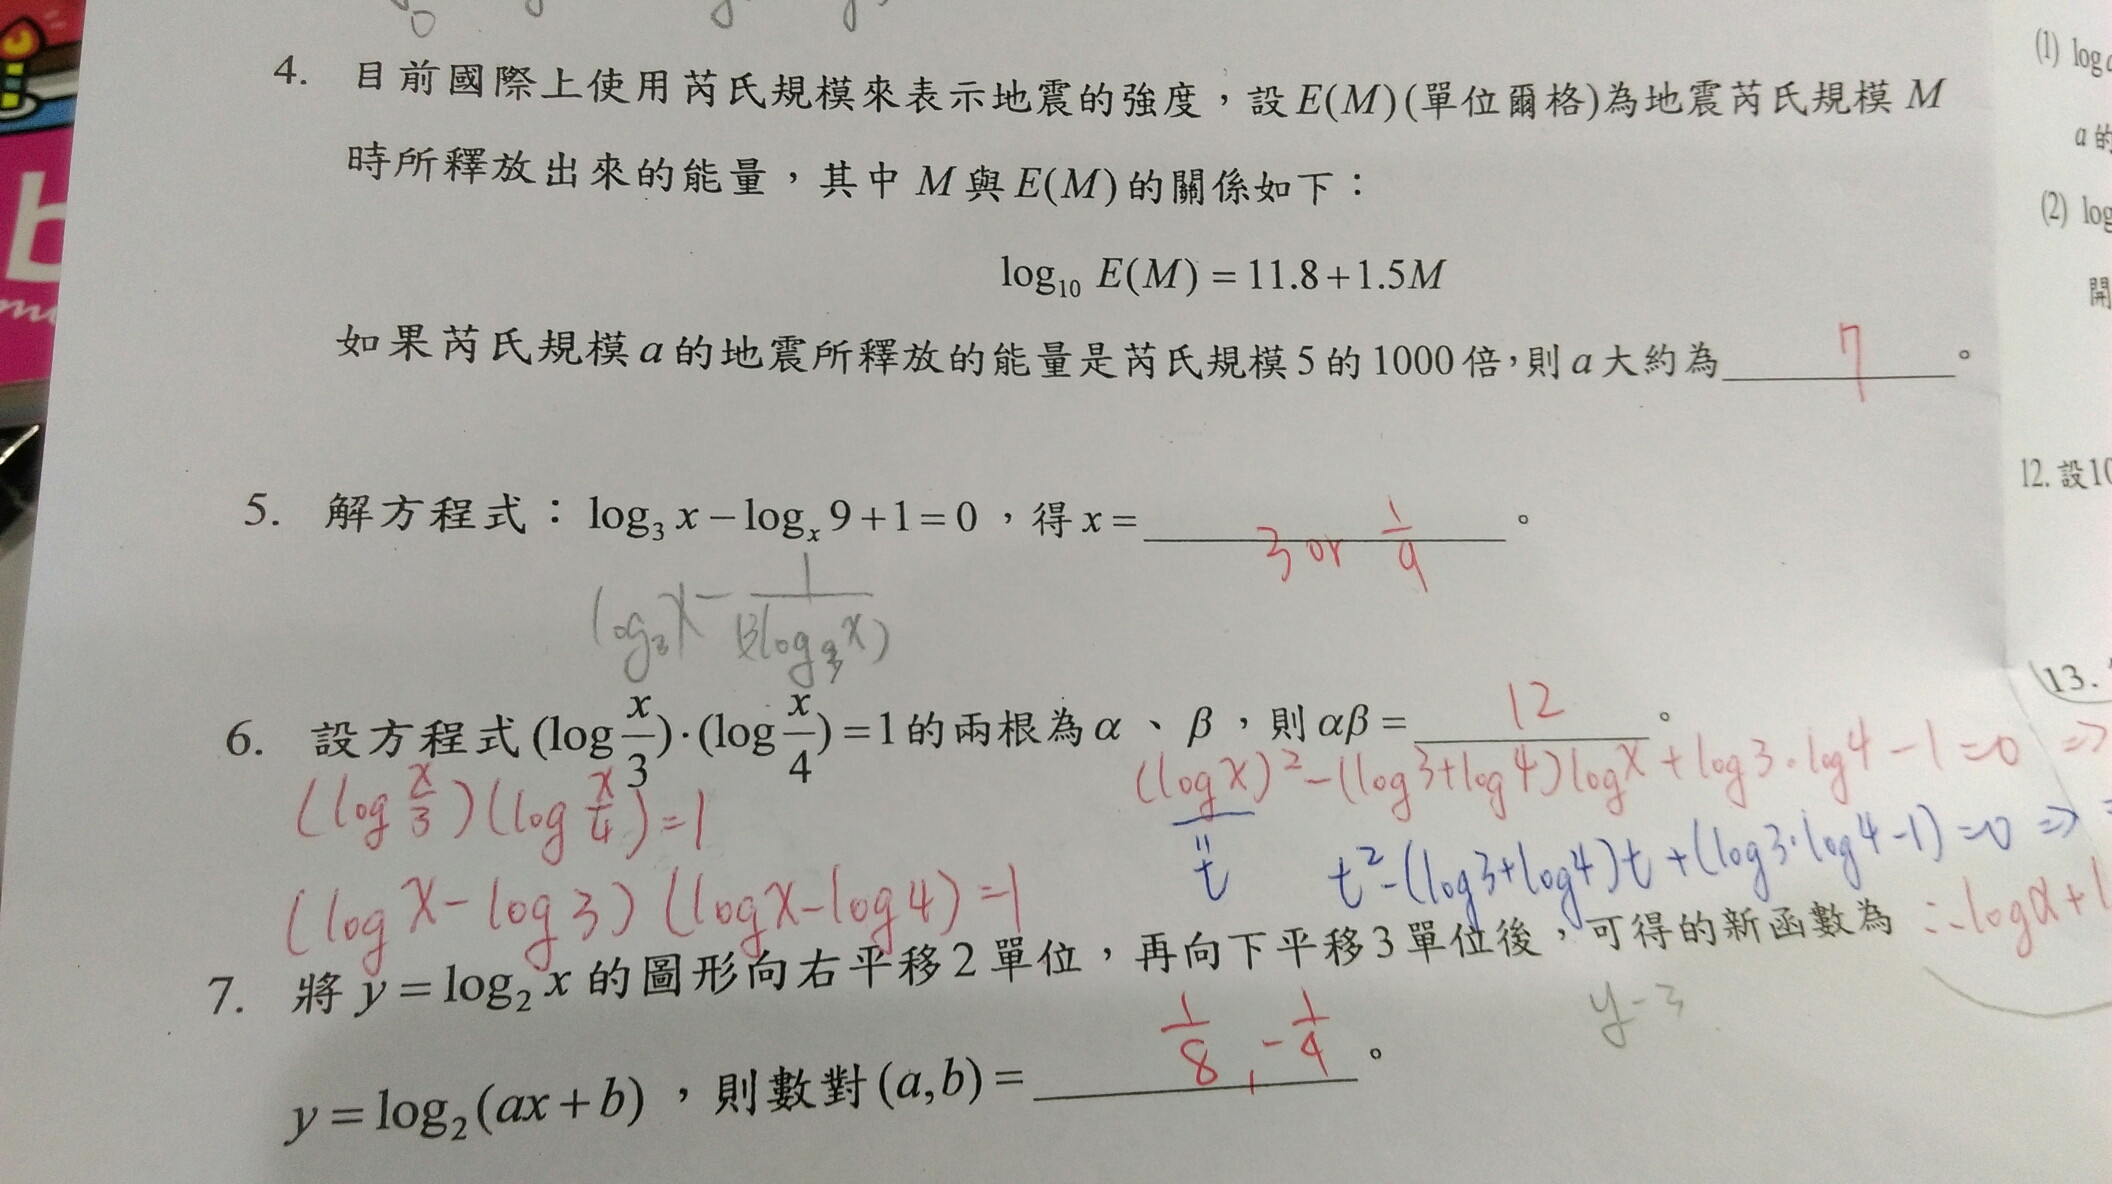 4. 目前國際上使用芮氏規模來表示地震的強度，設E(M)(單位爾格)為地震芮氏規模 M
時所釋放出來的能量，其中 M 與 E(M) 的關係如下：
log₁₀ E(M) = 11.8+1.5M
如果芮氏規模 a 的地震所釋放的能量是芮氏規模 5 的 1000 倍，則 a 大約為 7 。
5. 解方程式：log₃ x − logₓ 9+1=0，得 x = 3 or 1/9 。
log₃x − 1/
6. 設方程式 (log x/3)·(log x/4) = 1 的兩根為 α、β，則 αβ = 12 。
(log x/3)(log x/4)=1
(logx)² − (log3+log4)logx + log3·log4 −1 =0 ⇒
t
t² − (log3+log4)t + (log3·log4 −1) =0 ⇒
(logx − log3)(logx − log4) =1
∴ logα +
7. 將 y = log₂ x 的圖形向右平移 2 單位，再向下平移 3 單位後，可得的新函數為
y−3
y = log₂(ax+b)，則數對 (a,b) = 1/8, −1/4 。
(1) log
a 的
(2) log
開
12. 設10
13.